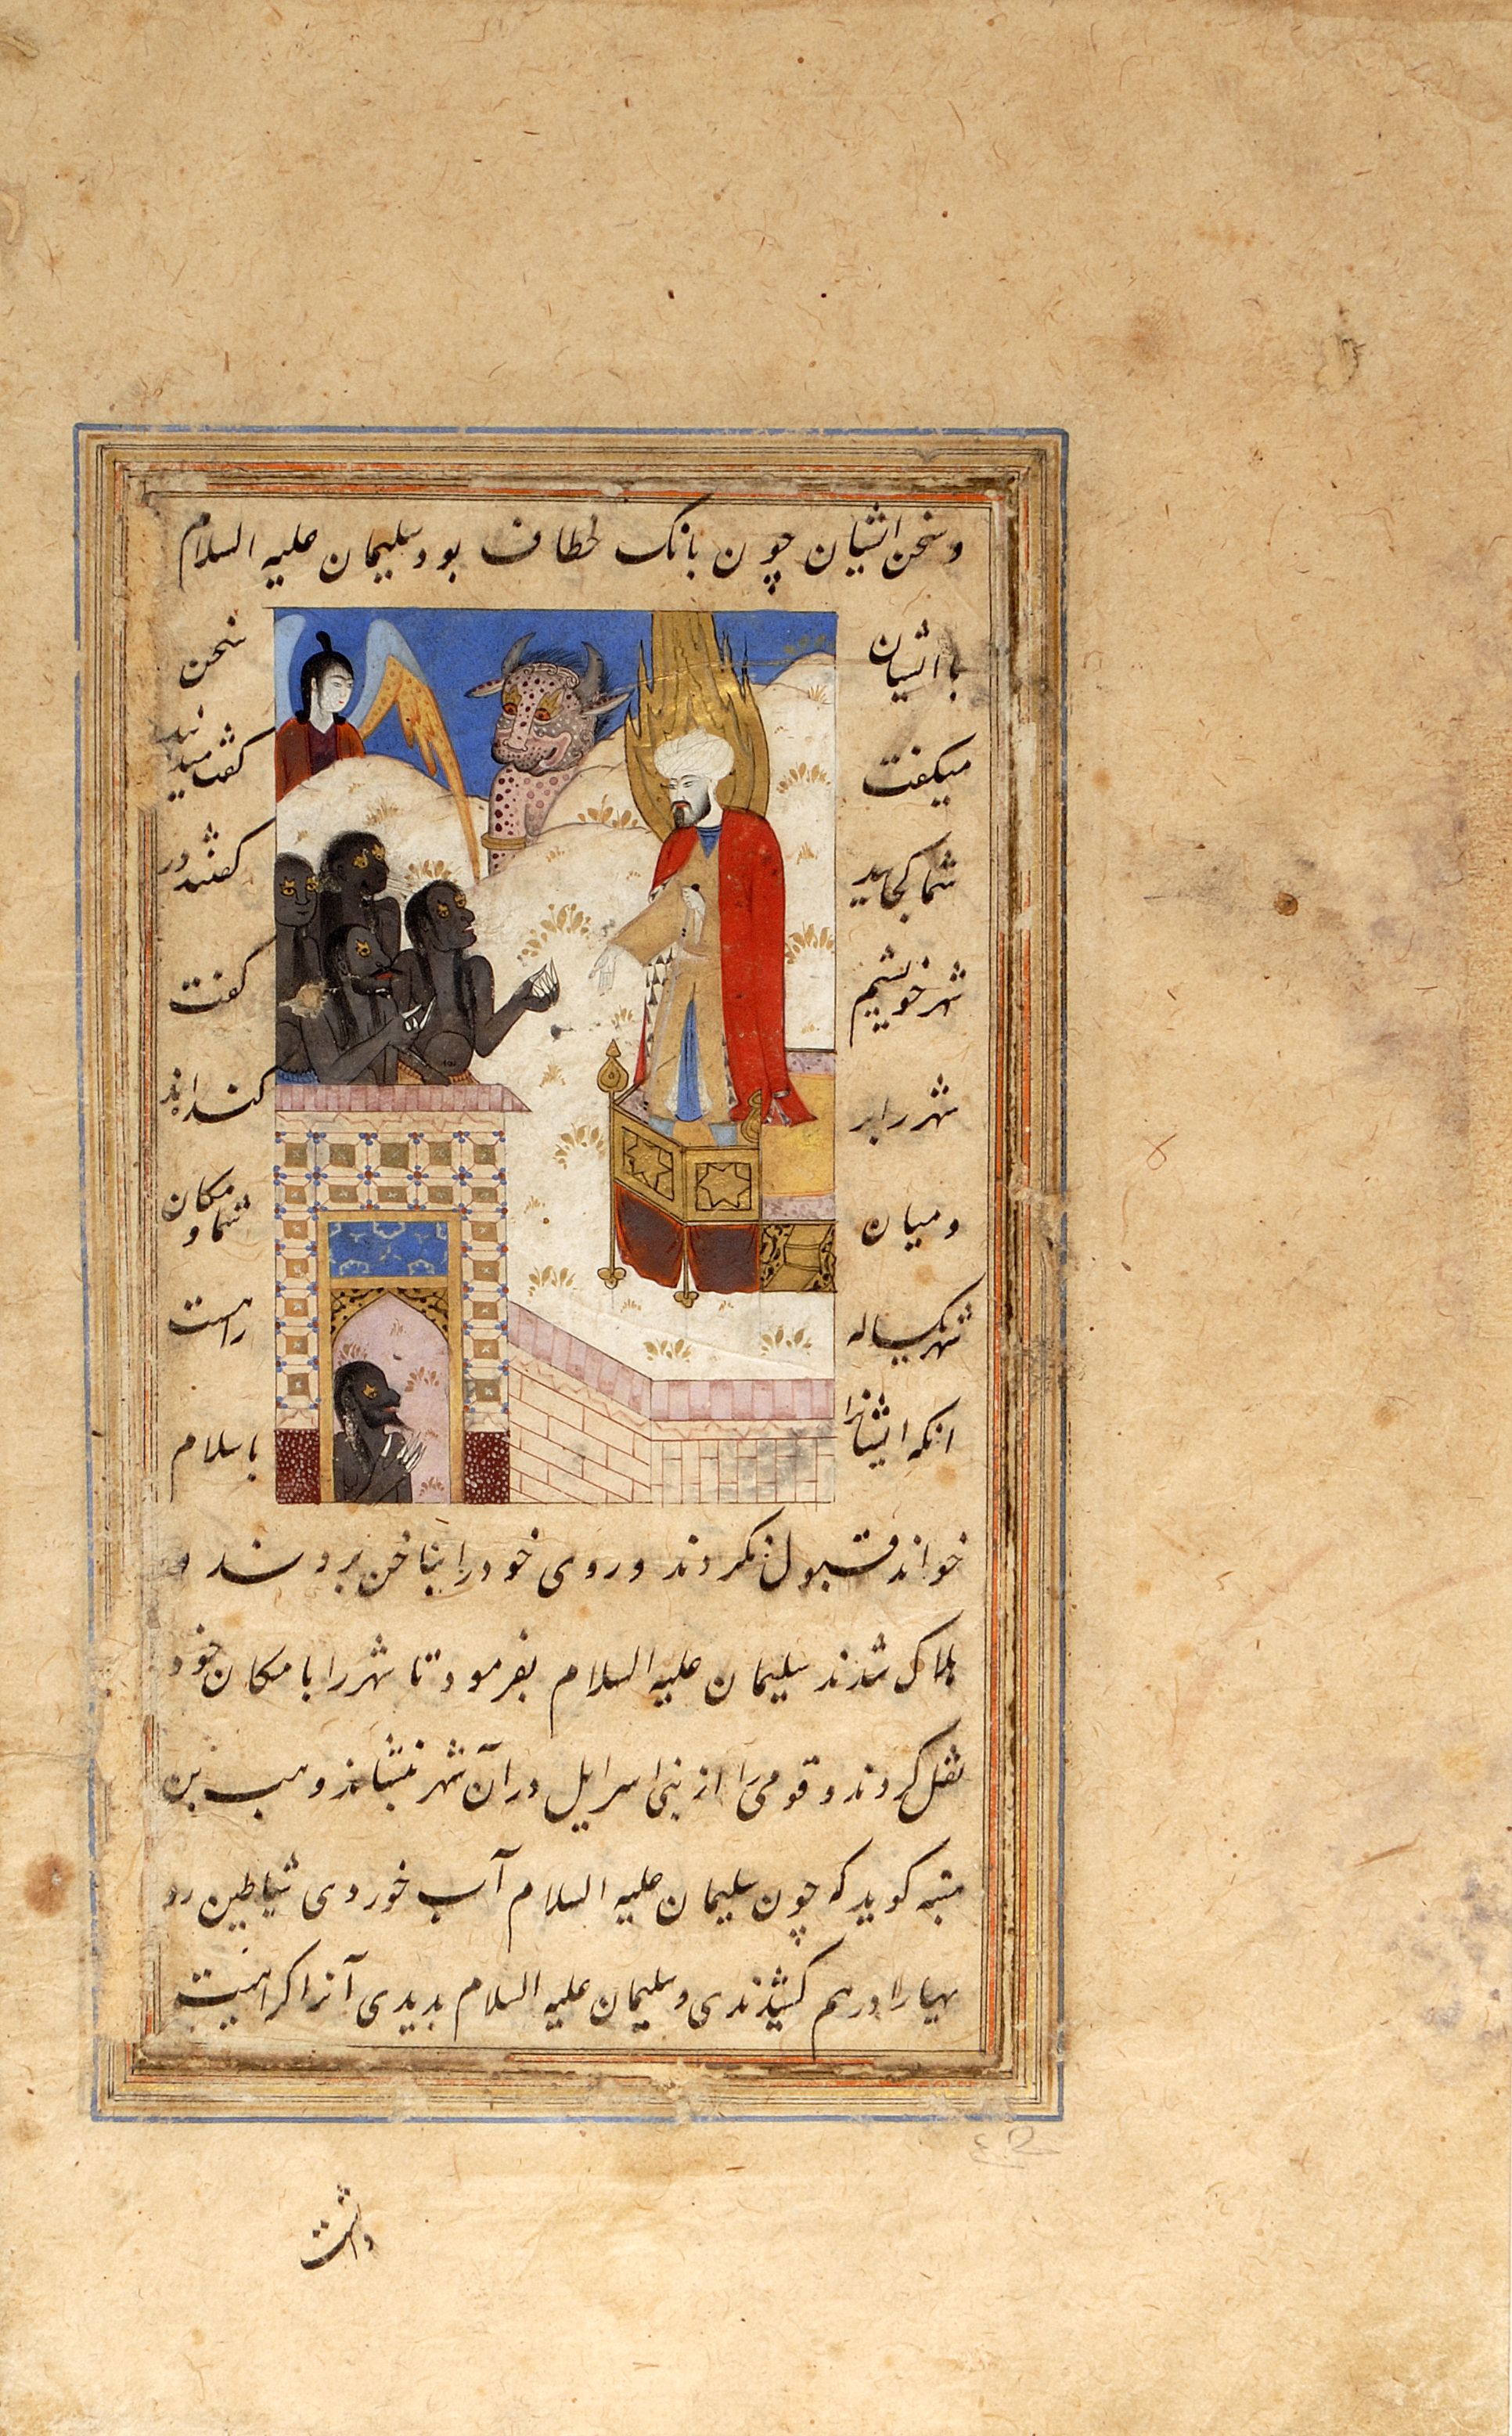 و سخن ایشان چون بانک خطاف بود سلیمان علیه السلام
با ایشان سخن
میکفت کفت میدانید
شما کجایید کفتند در
شهر خویشیم کفت
شهر را بر کنده‌اند
و میان شما و مکان
شهر یکساله راهست
انکه ایشانرا باسلام
خواند قبول نکردند و روی خود را بناخن بروشند و
هلاک شدند سلیمان علیه السلام بفرمود تا شهر را با مکان خود
نقل کردند و قومی را از بنی اسرایل در آن شهر بنشاند و وهب بن
منبه کوید که چون سلیمان علیه السلام آب خوردی شیاطین رو
یهارا درهم کشیدندی و سلیمان علیه السلام بدیدی آنرا کراهیت
داشت